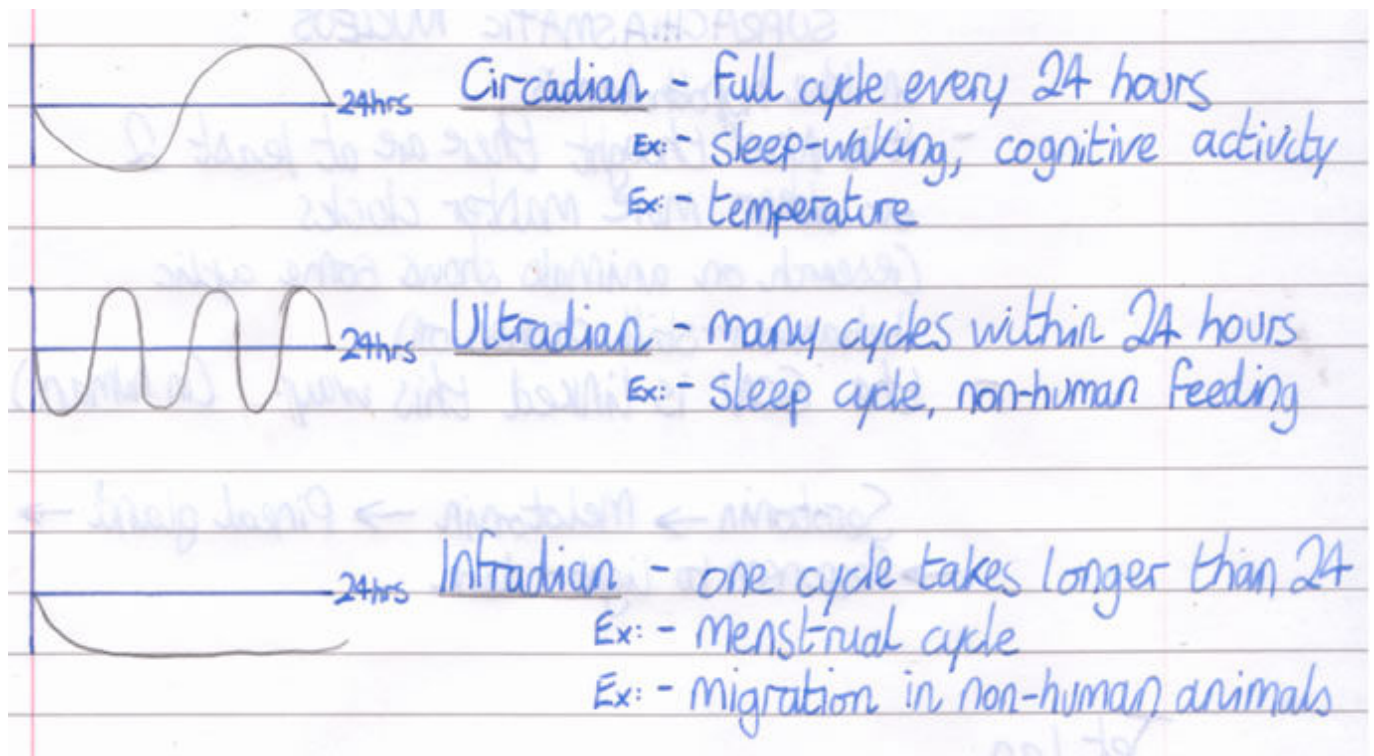 24hrs Circadian - Full cycle every 24 hours
Ex: - sleep-waking, cognitive activity
Ex: - temperature
24hrs Ultradian - many cycles within 24 hours
Ex: - sleep cycle, non-human feeding
24hrs Infradian - one cycle takes longer than 24
Ex: - menstrual cycle
Ex: - migration in non-human animals